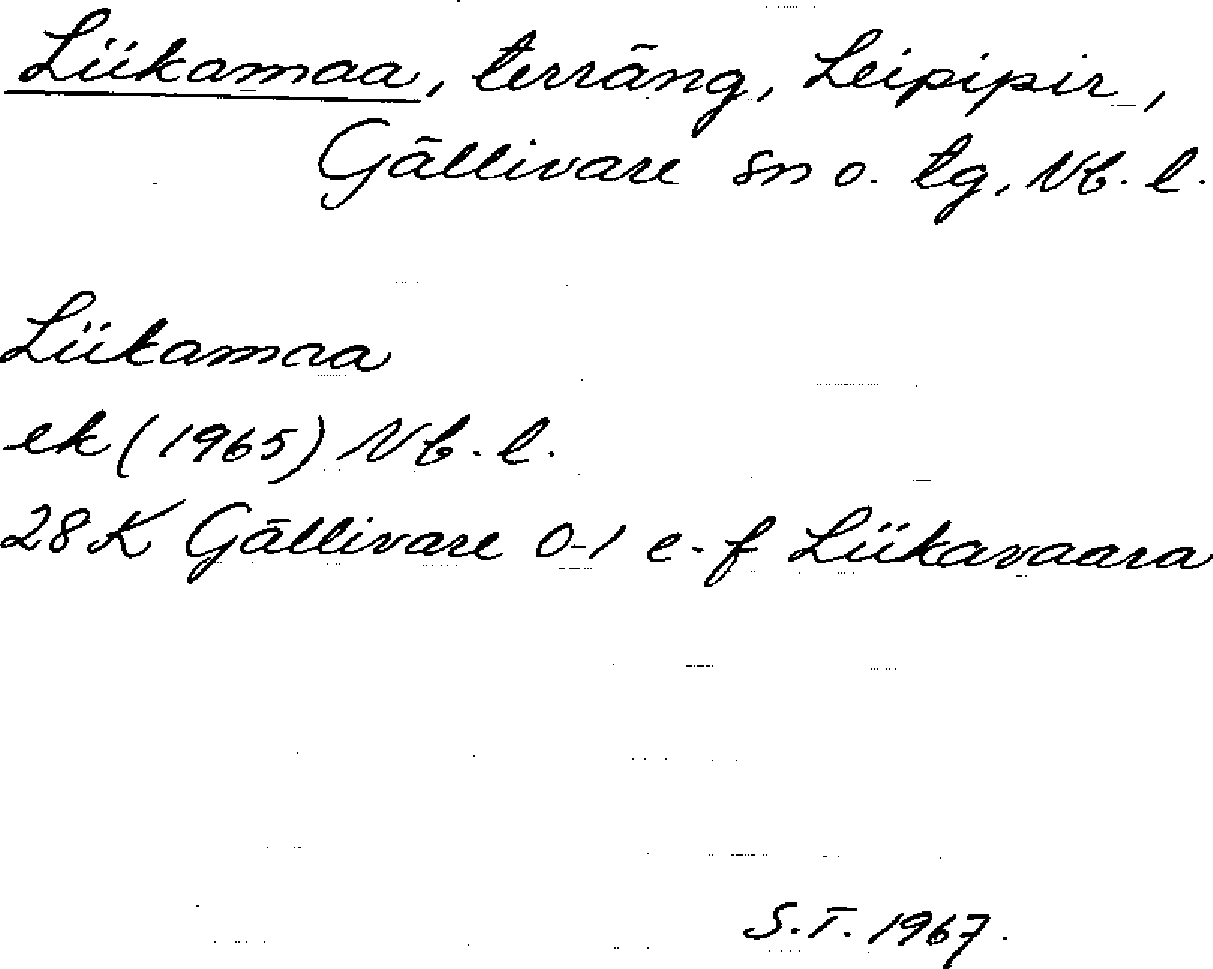 Liikamaa, terräng, Leipipir,
Gällivare sn o. tg, Nb. l.
Liikamaa
ek (1965) Nb. l.
28 K Gällivare 0-1 e-f Liikavaara
S.T. 1967.